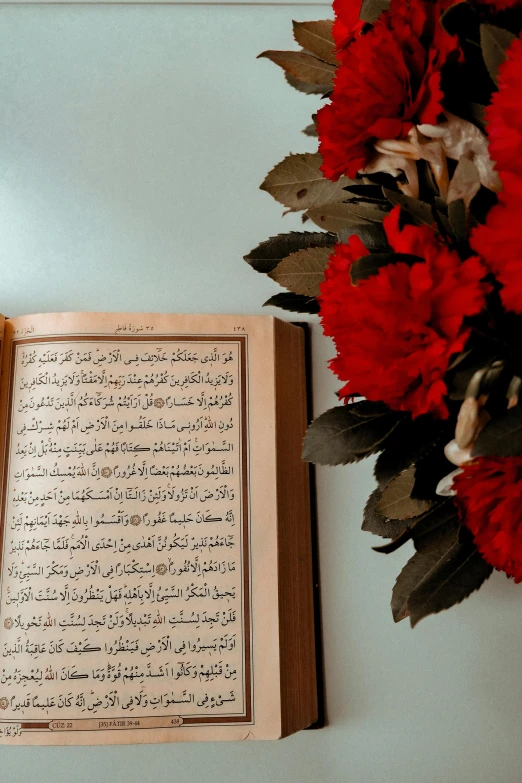 الجزء ٢٢ ٣٥ سورة فاطر ٤٣٨
هُوَ الَّذٖي جَعَلَكُمْ خَلَٓائِفَ فِي الْاَرْضِ فَمَنْ كَفَرَ فَعَلَيْهِ كُفْرُهُ
وَلَا يَزٖيدُ الْكَافِرٖينَ كُفْرُهُمْ عِنْدَ رَبِّهِمْ اِلَّا مَقْتًا وَلَا يَزٖيدُ الْكَافِرٖينَ
كُفْرُهُمْ اِلَّا خَسَارًا قُلْ اَرَاَيْتُمْ شُرَكَٓاءَكُمُ الَّذٖينَ تَدْعُونَ مِنْ
دُونِ اللّٰهِ اَرُونٖي مَاذَا خَلَقُوا مِنَ الْاَرْضِ اَمْ لَهُمْ شِرْكٌ فِي
السَّمٰوَاتِ اَمْ اٰتَيْنَاهُمْ كِتَابًا فَهُمْ عَلٰى بَيِّنَتٍ مِنْهُ بَلْ اِنْ يَعِدُ
الظَّالِمُونَ بَعْضُهُمْ بَعْضًا اِلَّا غُرُورًا اِنَّ اللّٰهَ يُمْسِكُ السَّمٰوَاتِ
وَالْاَرْضَ اَنْ تَزُولَا وَلَئِنْ زَالَتَٓا اِنْ اَمْسَكَهُمَا مِنْ اَحَدٍ مِنْ بَعْدِهٖ
اِنَّهُ كَانَ حَلٖيمًا غَفُورًا وَاَقْسَمُوا بِاللّٰهِ جَهْدَ اَيْمَانِهِمْ لَئِنْ
جَٓاءَهُمْ نَذٖيرٌ لَيَكُونُنَّ اَهْدٰى مِنْ اِحْدَى الْاُمَمِ فَلَمَّا جَٓاءَهُمْ نَذٖيرٌ
مَا زَادَهُمْ اِلَّا نُفُورًا اِسْتِكْبَارًا فِي الْاَرْضِ وَمَكْرَ السَّيِّئِ وَلَا
يَحٖيقُ الْمَكْرُ السَّيِّئُ اِلَّا بِاَهْلِهٖ فَهَلْ يَنْظُرُونَ اِلَّا سُنَّتَ الْاَوَّلٖينَ
فَلَنْ تَجِدَ لِسُنَّتِ اللّٰهِ تَبْدٖيلًا وَلَنْ تَجِدَ لِسُنَّتِ اللّٰهِ تَحْوٖيلًا
اَوَلَمْ يَسٖيرُوا فِي الْاَرْضِ فَيَنْظُرُوا كَيْفَ كَانَ عَاقِبَةُ الَّذٖينَ
مِنْ قَبْلِهِمْ وَكَانُٓوا اَشَدَّ مِنْهُمْ قُوَّةً وَمَا كَانَ اللّٰهُ لِيُعْجِزَهُ مِنْ
شَيْءٍ فِي السَّمٰوَاتِ وَلَا فِي الْاَرْضِ اِنَّهُ كَانَ عَلٖيمًا قَدٖيرًا
CÜZ: 22 [35] FÂTIR 39-44 438